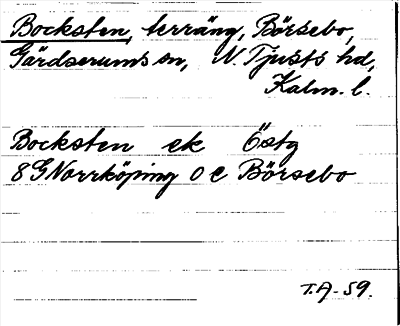 Bocksten, terräng, Börsebo,
Gärdserums sn, N. Tjusts hd,
Kalm. l.
Bocksten ek Östg
8G Norrköping 0 e Börsebo
T.A-59.